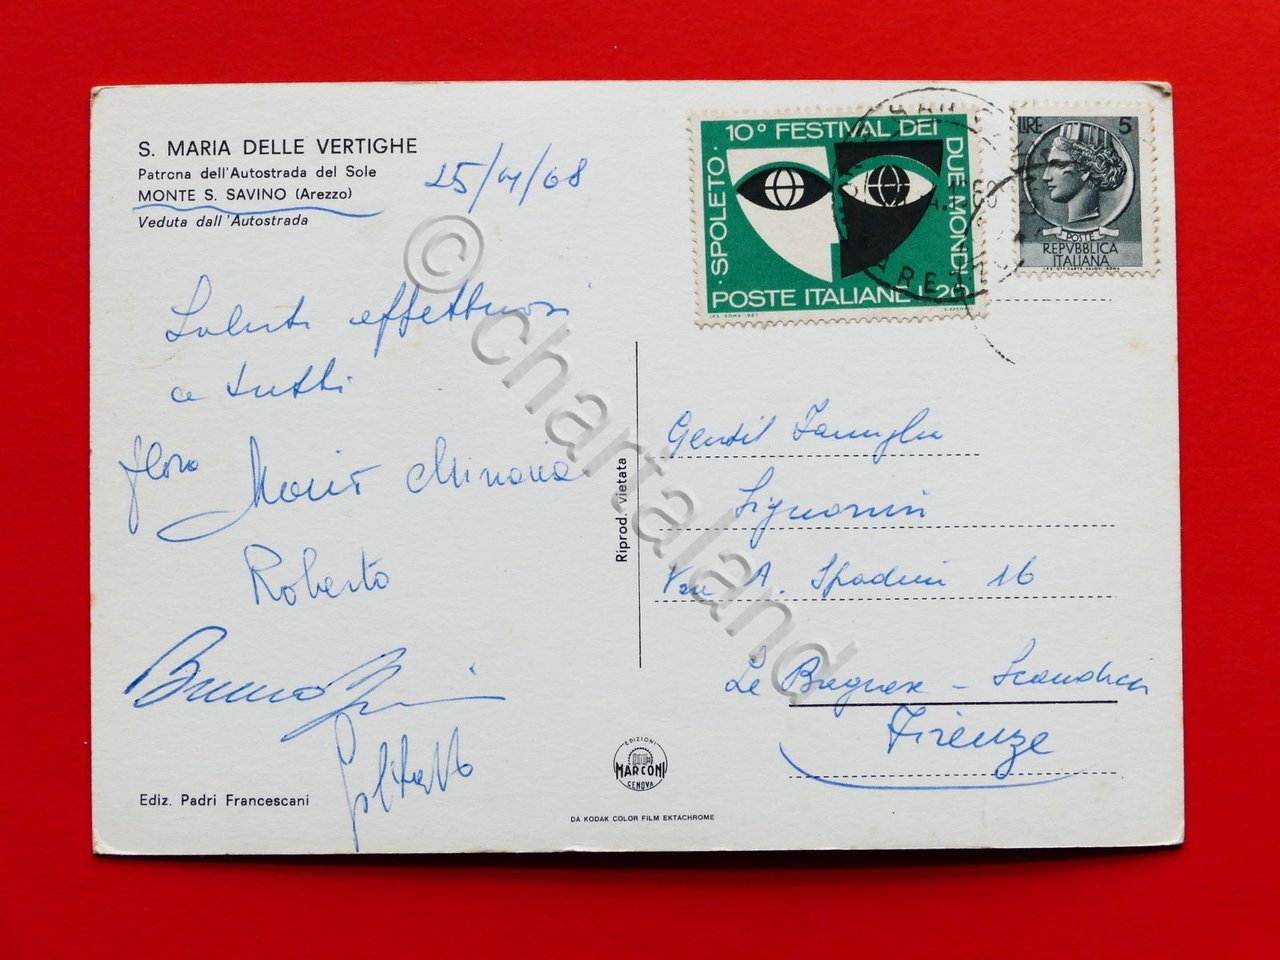 S. MARIA DELLE VERTIGHE
Patrona dell'Autostrada del Sole
MONTE S. SAVINO (Arezzo)
Veduta dall'Autostrada
25/4/68
Saluti affettuosi
a tutti
Flora Mario
Roberto
Bruno
10° FESTIVAL DEI
DUE MONDI
SPOLETO
POSTE ITALIANE L.20
I.P.S. ROMA 1967
LIRE 5
POSTE
REPVBBLICA
ITALIANA
Gentil Famiglia
Signorini
Via A. Spadini 16
Le Bagnese - Scandicci
Firenze
Riprod. vietata
EDIZIONI
MARCONI
GENOVA
Ediz. Padri Francescani
DA KODAK COLOR FILM EKTACHROME
© chartaland